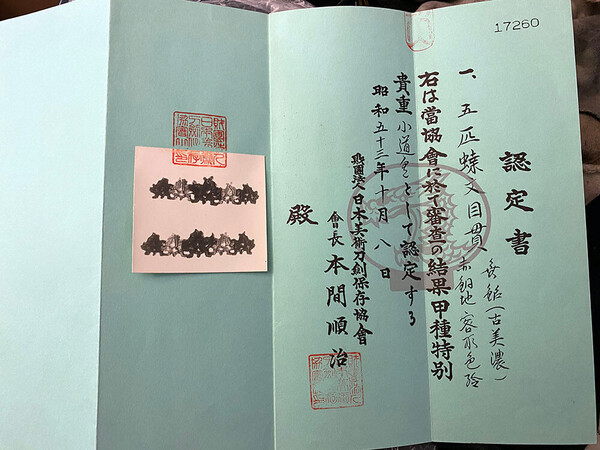 17260
認定書
一、五匹蝶文目貫 無銘(古美濃)
赤銅地容彫色絵
右は當協會に於て審査の結果甲種特別
貴重小道具として認定する
昭和五十三年十月八日
財團法人日本美術刀剣保存協會
會長 本間順治
殿